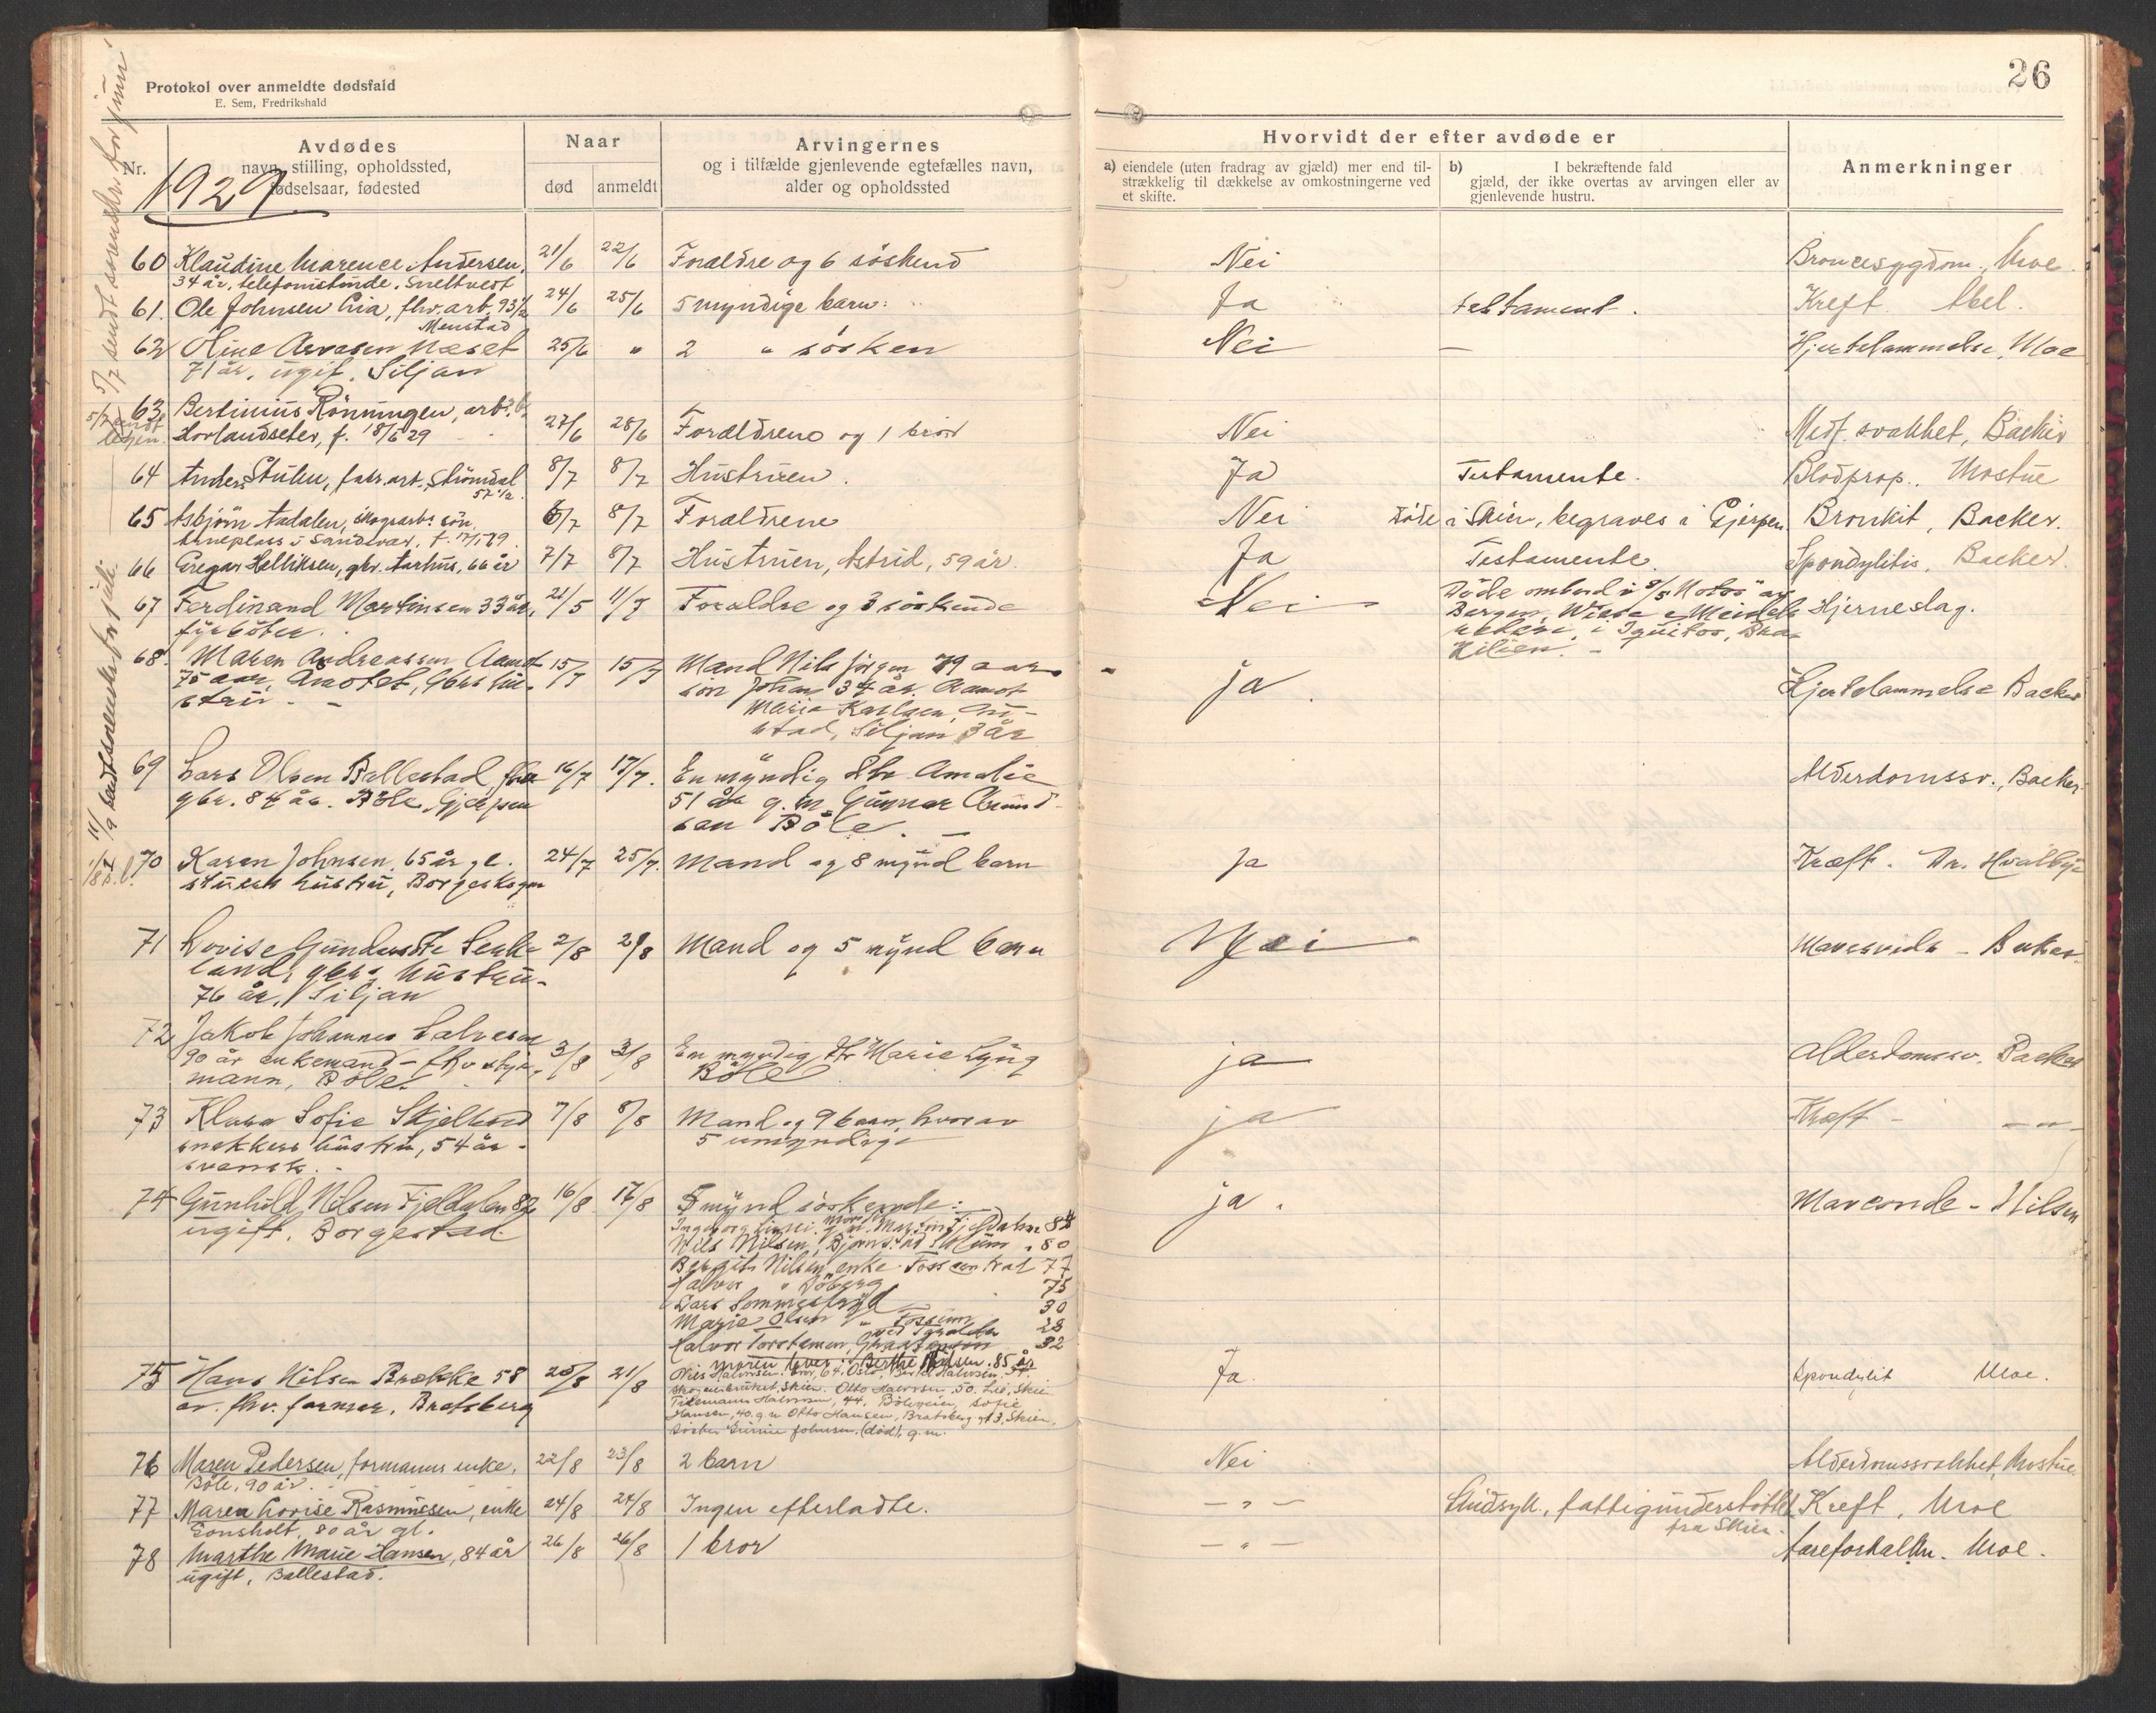 26
Protokol over anmeldte dødsfald
E. Sem, Fredrikshald
Nr.
Avdødes
navn, stilling, opholdssted,
fødselsaar, fødested
1929
Naar
død
anmeldt
Arvingernes
og i tilfælde gjenlevende egtefælles navn,
alder og opholdssted
Hvorvidt der efter avdøde er
a) eiendele (uten fradrag av gjæld) mer end til-
strækkelig til dækkelse av omkostningerne ved
et skifte.
b) I bekræftende fald
gjæld, der ikke overtas av arvingen eller av
gjenlevende hustru.
Anmerkninger
5/7 sendt sorenskr. for juni
60 Klaudine Marence Andersen, 21/6 22/6 Forældre og 6 søskend Nei Broncesygdom, Moe.
34 år, telefonistinde, Sneltvedt
61. Ole Johnsen Lia, fhv. arb. 93 1/2 24/6 25/6 5 myndige barn: Ja testament. Kreft. Abel.
Menstad
62 Oline Aresen Næset 25/6 " 2 " søsken Nei — Hjertelammelse, Moe
71 år, ugift, Siljan
5/7 sendt
63. Bertinius Rönningen, arb. 27/6 28/6 Forældrene og 1 bror Nei Medf. svakhet, Backer
Horlandseter, f. 18/6 29
64 Anders Stulen, fabr.arb., Strömdal 8/7 8/7 Hustruen. Ja Testamente. Blodprop., Mostue
57 1/2
65 Asbjörn Aadalen, skogsarb. sön, 6/7 8/7 Forældrene Nei Döde i Skien, begraves i Gjerpen Bronkit, Backer.
i Sandsvær, f. 17/1 29
66 Gregar Helliksen, gbr. Aarhus, 66 år 7/7 8/7 Hustruen, Astrid, 59 år. Ja Testamente. Spondylitis, Backer.
67 Ferdinand Martinsen 33 år, 21/5 11/7 Forældre og 3 søskende Nei Döde ombord i D/S "Motos" av Hjerneslag.
fyrböter. Bergen,
rederi, i Iquitos, Bra-
silien. –
68. Maren Andreassen Aamot 15/7 15/7 Mand Nils Jörgen 79 aar ja. Hjertelammelse Backer
75 aar, Amotet, gbrs hu-
stru. – sön Johan 34 år. Aamot
Marie Karlsen,
Siljan 3 år
69 Lars Olsen Ballestad, fhv 16/7 17/7. En myndig dtr. Amalie Alderdomssv., Backer.
gbr. 84 år. Böle, Gjerpen 51 år g. m. Gunnar Amund-
sen Böle.
11/9 sendt sorenskr. for juli.
70 Karen Johnsen, 65 år gl. 24/7 25/7. Mand og 8 mynd barn Ja Kræft. Dr. Hvalbye
hustru, Borgeskogen
71 Lovise Gundersdtr 2/8 2/8 Mand og 5 mynd barn Nei Mavesvulst – Backer.
land, gbrs hustru –
76 år, Siljan
72 Jakob Johannes Halvesen 3/8 3/8 En myndig dtr Marie Lyng ja Alderdomssv. Backer
90 år enkemand – fhv styr-
mann, Böle. Böle
73 Klara Sofie Skjelbred 7/8 8/8 Mand og 9 barn, hvorav ja Kræft – – " –
snekkers hustru, 54 år – 5 umyndige
svensk. –
74 Gunhild Nilsen Fjeldalen 82 16/8 17/8 5 mynd søskende: ja. Mavonde – Nilsen
ugift. Borgestad.
Nils Nilsen, Skum, 80
Bergit Nilsen enke Fossum 77
Halvor " Döberg 75
Lars 30
Marie Olsen " Fossum 28
Halvor Torstensen, 32
75 Hans Nilsen Brække 58 20/8 21/8 moren lever: Berthe Nilsen. 85 år Ja. Spondylit Moe.
år. fhv. farmer. Bratsberg Nils Halvorsen, bror, 64, Oslo,
Skien. Otto Halvorsen, 50. Lie, Skien
Tidemann Halvorsen, 44, Böleveien, Sofie
Hansen, 40. g. m. Otto Hansen, Bratsberg gt 3, Skien.
Johnsen, (död), g. m.
76 Maren Pedersen, formanns enke, 22/8 23/8 2 barn Nei Alderdomssvakhet, Mostue
Böle, 90 år.
77 Maren Lovise Rasmussen, enke 24/8 24/8 Ingen efterladte. – " – Sindsyk, fattigunderstöttet Kreft, Moe
Eonsholt, 80 år gl. fra Skien.
78 Marthe Marie Hansen, 84 år 26/8 26/8 1 bror – " – Aareforkalkn. Moe.
ugift, Ballestad.